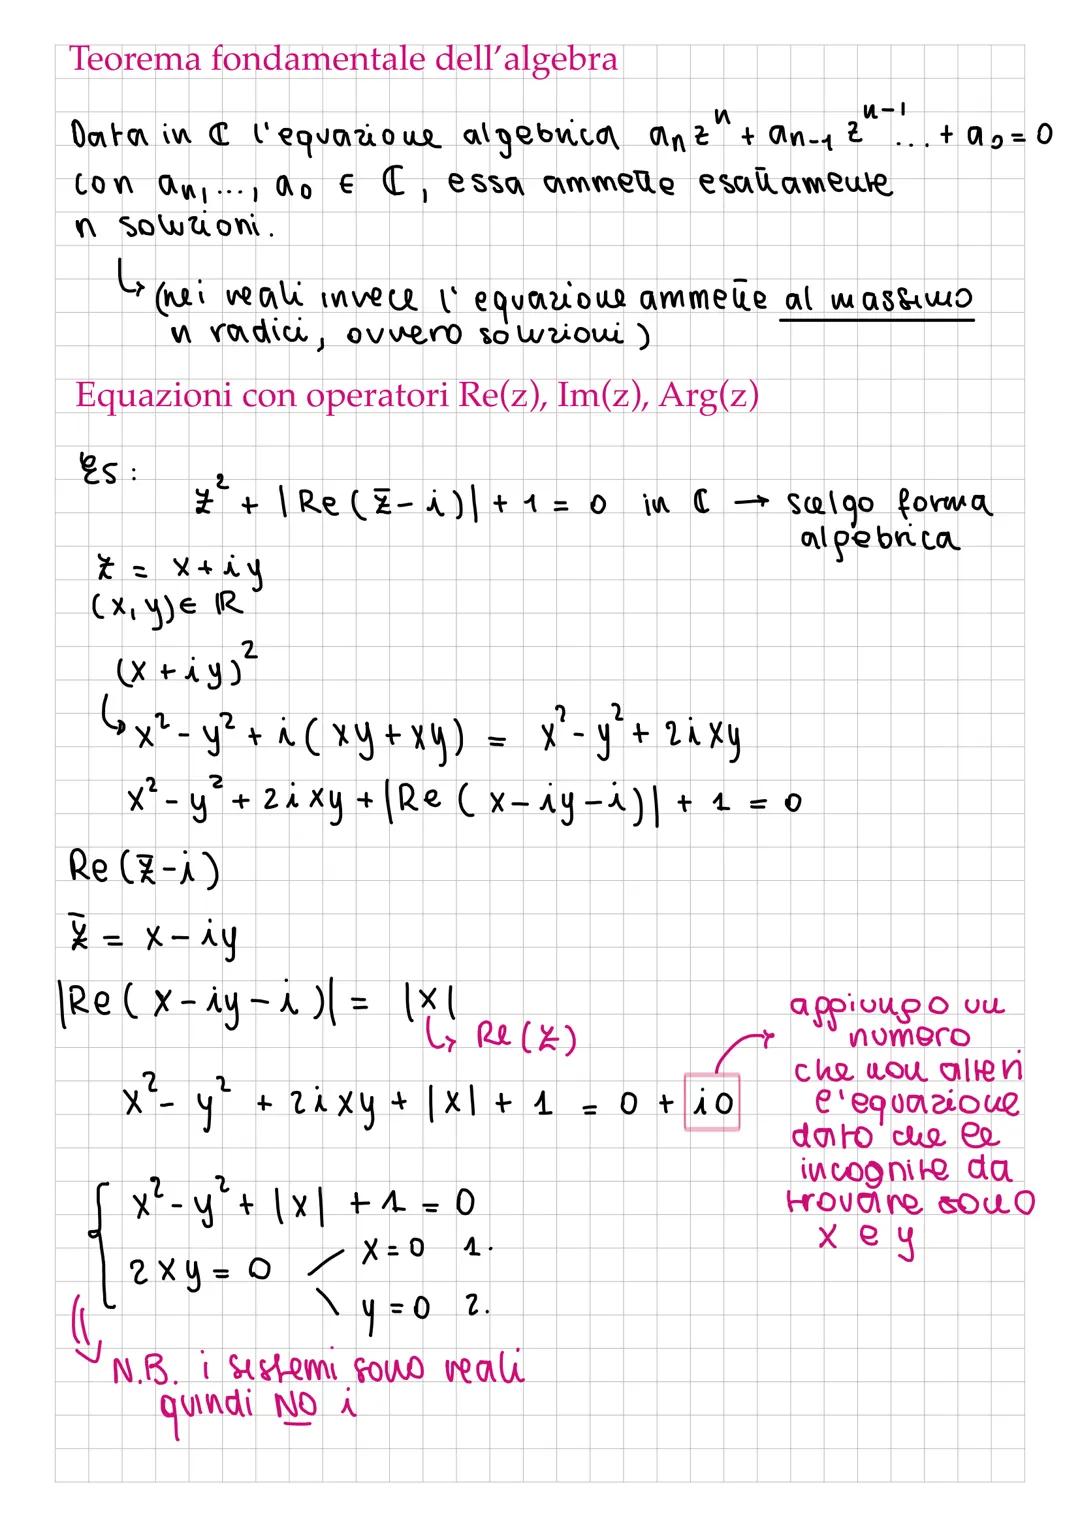 Teorema fondamentale dell'algebra
Data in ℂ l'equazione algebrica aₙzⁿ + aₙ₋₁ zⁿ⁻¹... + a₀ = 0
con aₙ, ..., a₀ ∈ ℂ, essa ammette esattamente
n soluzioni.
↳ (nei reali invece l'equazione ammette al massimo
n radici, ovvero soluzioni)
Equazioni con operatori Re(z), Im(z), Arg(z)
Es:
z² + |Re(z̄ - i)| + 1 = 0 in ℂ → scelgo forma
algebrica
z = x + iy
(x, y) ∈ ℝ
(x + iy)²
↳ x² - y² + i(xy + xy) = x² - y² + 2ixy
x² - y² + 2ixy + |Re(x - iy - i)| + 1 = 0
Re(z̄ - i)
z̄ = x - iy
|Re(x - iy - i)| = |x|
↳ Re(z)
x² - y² + 2ixy + |x| + 1 = 0 + i0
→ aggiungo un
numero
che non alteri
l'equazione
dato che le
incognite da
trovare sono
x e y
{ x² - y² + |x| + 1 = 0
2xy = 0
x = 0 1.
y = 0 2.
⇒ N.B. i sistemi sono reali
quindi NO i